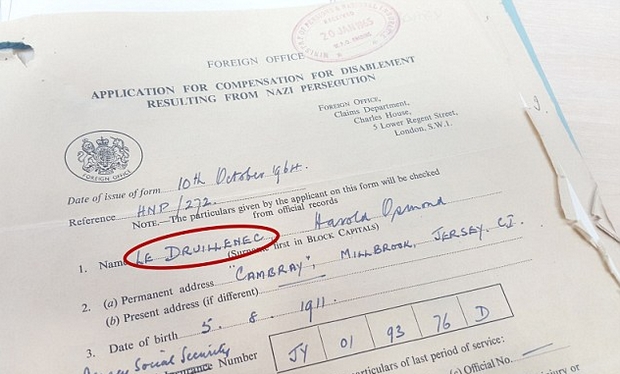 20 JAN 1965
FOREIGN OFFICE
APPLICATION FOR COMPENSATION FOR DISABLEMENT
RESULTING FROM NAZI PERSECUTION
FOREIGN OFFICE,
Claims Department,
Charles House,
5 Lower Regent Street,
London, S.W.1.
FOREIGN OFFICE
Date of issue of form 10th October 1964.
Reference HNP/272.
NOTE.—The particulars given by the applicant on this form will be checked
from official records
1. Name LE DRUILLENEC Harold Osmond
(Surname first in BLOCK CAPITALS)
2. (a) Permanent address "CAMBRAY", MILLBROOK, JERSEY, C.I.
(b) Present address (if different)
3. Date of birth 5. 8. 1911.
Social Security
Insurance Number JY 01 93 76 D
particulars of last period of service:
(c) Official No.
injury or